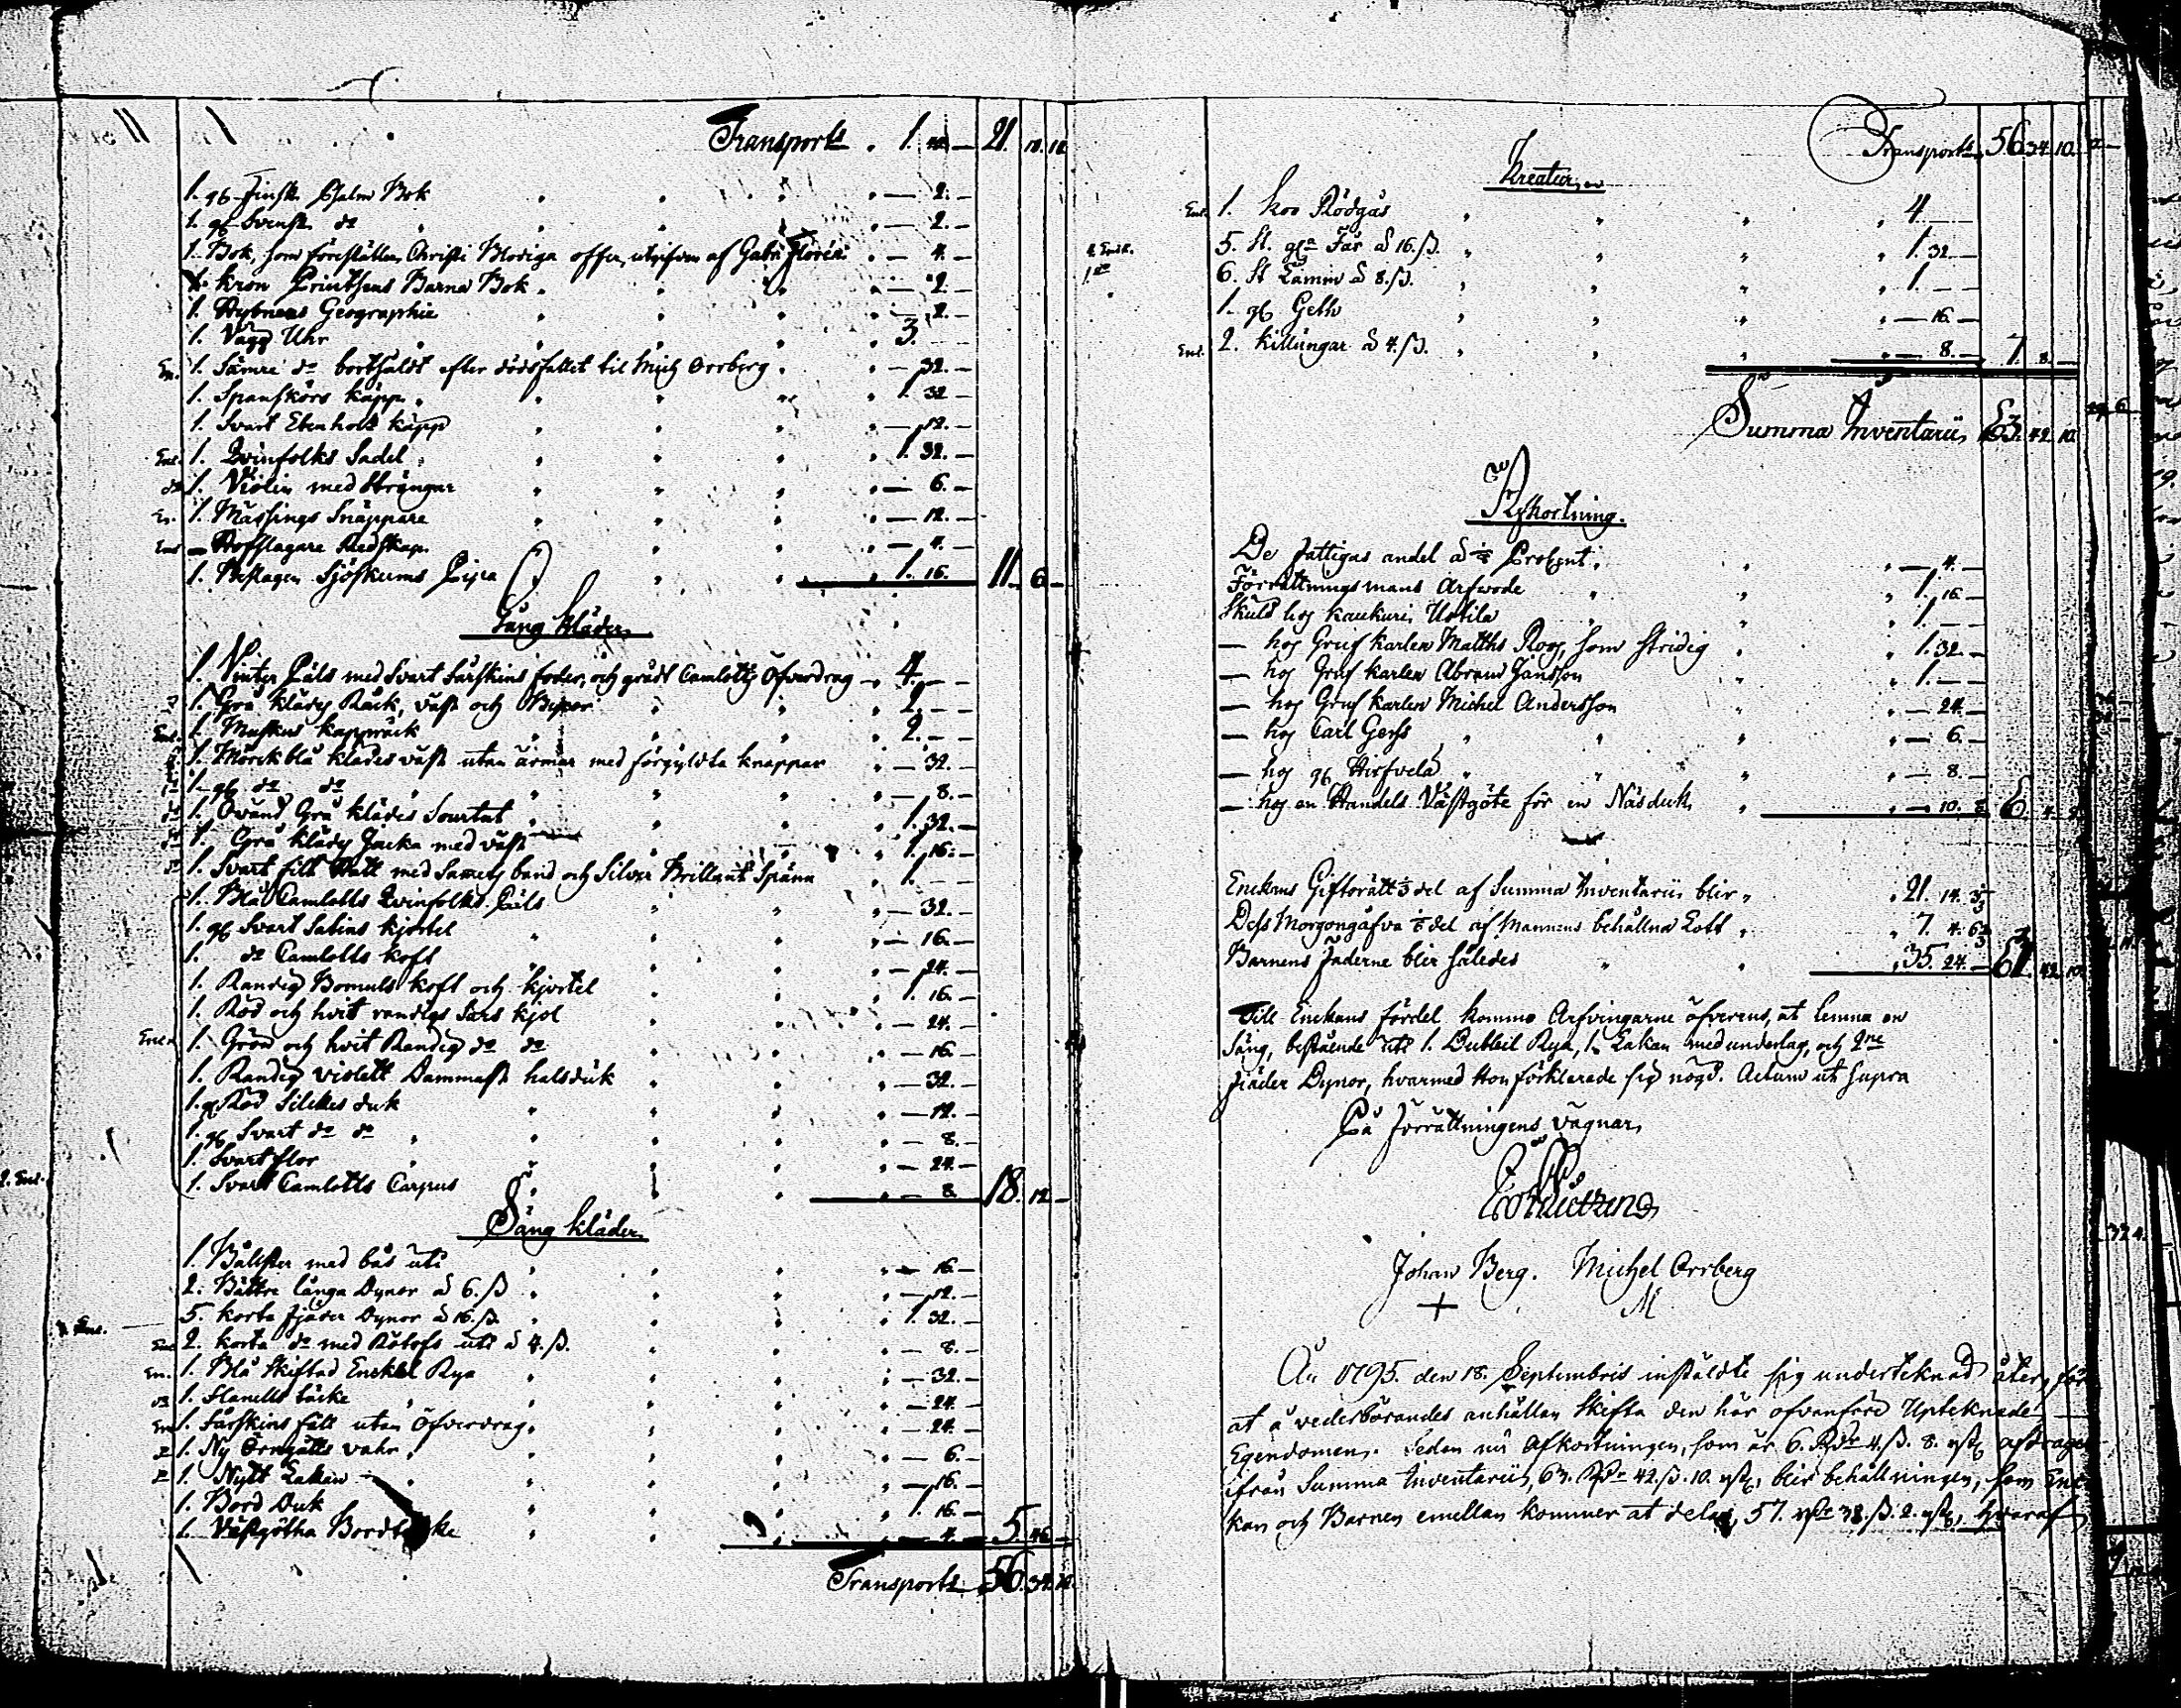 Transport . 1. 42.— 21. 10. 10
1. gl Finsk Psalm Bok — 2.—
1. gl Svensk do — 2.—
1. Bok, som föreställer Christi Blodiga offer, utgifven af Gabr — 4.—
1. Kron Printsens Barna Bok — 2.—
1. Hybners Geographie — 2.—
1. Vägg Uhr 3.
En. 1. Sämre do bortsåldt efter dödsfallet til Mich Orrberg — 32.—
1. Spanskrörs käpp 1. 32 —
1. Svart Ebenholts käpp — 12.—
Enk. 1. Qvinfolks Sadel 1. 32.—
do 1. Violin med strängar — 6.—
En. 1. Mässings Snäppare — 12.—
Enk — Hofslagare Redskap — 4.—
1. Beslagen Sjöskums Pipa 1. 16. 11. 6 —
Gång Kläder
1. Vinter Päls med svart fårskins foder, och grått Camlotts Öfverdrag 4.—
1. Grå klädes Råck, väst och Byxor 2.—
Enk. 1. kappråck 2.—
1. Mörckblå klädes väst utan ärmar med förgyldta knappar — 32.—
1. gl do do — 8.—
do 1. Owänd Grå klädes Sourtut 1. 32.—
do 1. Grå klädes Jacka med väst 1. 16.—
do 1. Svart filt Hatt med Samets band och Silver Brillant Spänne 1.
1. Blå Camlotts Qvinfolks Päls — 32.—
1. gl Svart Satins kjortel — 16.—
1. do Camlotts koft — 24.—
1. Randig Bomuls koft och kjortel 1. 16.—
1. Röd och hvit randigt Sars kjol — 24.—
Enk. 1. Grön och hvit Randig do do — 16.—
1. Randig violett Dammast halsduk — 32.—
1. gl Röd Silckes duk — 12.—
1. gl Svart do do — 8.—
1. Svart flor — 24.—
2. Enk. 1. Svart Camlotts Carpus — 8 18. 12 —
Säng kläder
1. Bålster med bås uti — 16.—
2. Bättre långa Dynor à 6. ß — 12.—
Enk. 5. korta fjäder Dynor à 16. ß. 1. 32.—
Enk 2. korta do med uti à 4. ß. — 8.—
En. 1. Blå Skiftad Enckel Rya — 32.—
do 1. Flanells täcke — 24.—
Enk 1. Fårskins fäll utan Öfverdrag — 24.—
do 1. Ny Örngåtts vahr — 6.—
do 1. Nytt Lakan — 16.—
1. Bord Duk 1. 16.—
1. Västgötha — 4.— 5. 46 —
Transport 56. 34. 10.
Transport 56. 34. 10.
Kreatur
Enk. 1. Koo Rödgås 4.—
2 Enk. 5. St. gla Får à 16. ß. 1. 32.—
1 do 6. St Lamm à 8. ß. 1.—
1. gl Geth — 16.—
Enk. 2. Killingar à 4. ß. — 8.— 7. 8.—
Summa Inventarii 63. 42. 10
Afkortning.
De fattigas andel à Procent — 4.—
Förrättningsmans Arfwode 1. 16.—
Skuld hos Kaukuri Uotila 1.—
— hos Gruf karlen Matths Roos, som stridig 1. 32.—
— hos Gruf karlen Abram Jansson 1.—
— hos Gruf karlen Michel Andersson — 24.—
— hos Carl Gerss — 6.—
— hos gl Hirfvelä — 8.—
— hos en Handels Västgöte för en Näsduk — 10. 8 6. 4. 8
Enckans Giftorätt 1/3 del af Summa Inventarii blir 21. 14. 3 1/3
Dess Morgongåfva del af Mannens behållna Lott 7. 4. 6 2/3
Barnens Fäderne blir således 35. 24.— 63. 42. 10
Till Enckans fördel komma Arfvingarne öfverens, at lemna en
Säng, bestående uti 1. Dubbel Rya, 1. Lakan med underlag, och 2ne
fjäder Dynor, hvarmed Hon förklarade sig nögd. Actum ut supra
På förrättningens vägnar
Johan Berg. Michel Orrberg
+ M
År 1795. den 18. Septembris instäldte sig underteknad åter, för
at å vederbörandes anhållan Skifta den här ofvanföre Uptecknade
Egendomen. Sedan nu Afkortningen, som är 6. Rdr 4. ß. 8. rst, afdrages
ifrån Summa Inventarii, 63. Rdr 42. ß. 10. rst, blir behållningen, som Enc
kan och Barnen emellan kommer at delas, 57. Rdr 38. ß. 2. rst, hvaraf